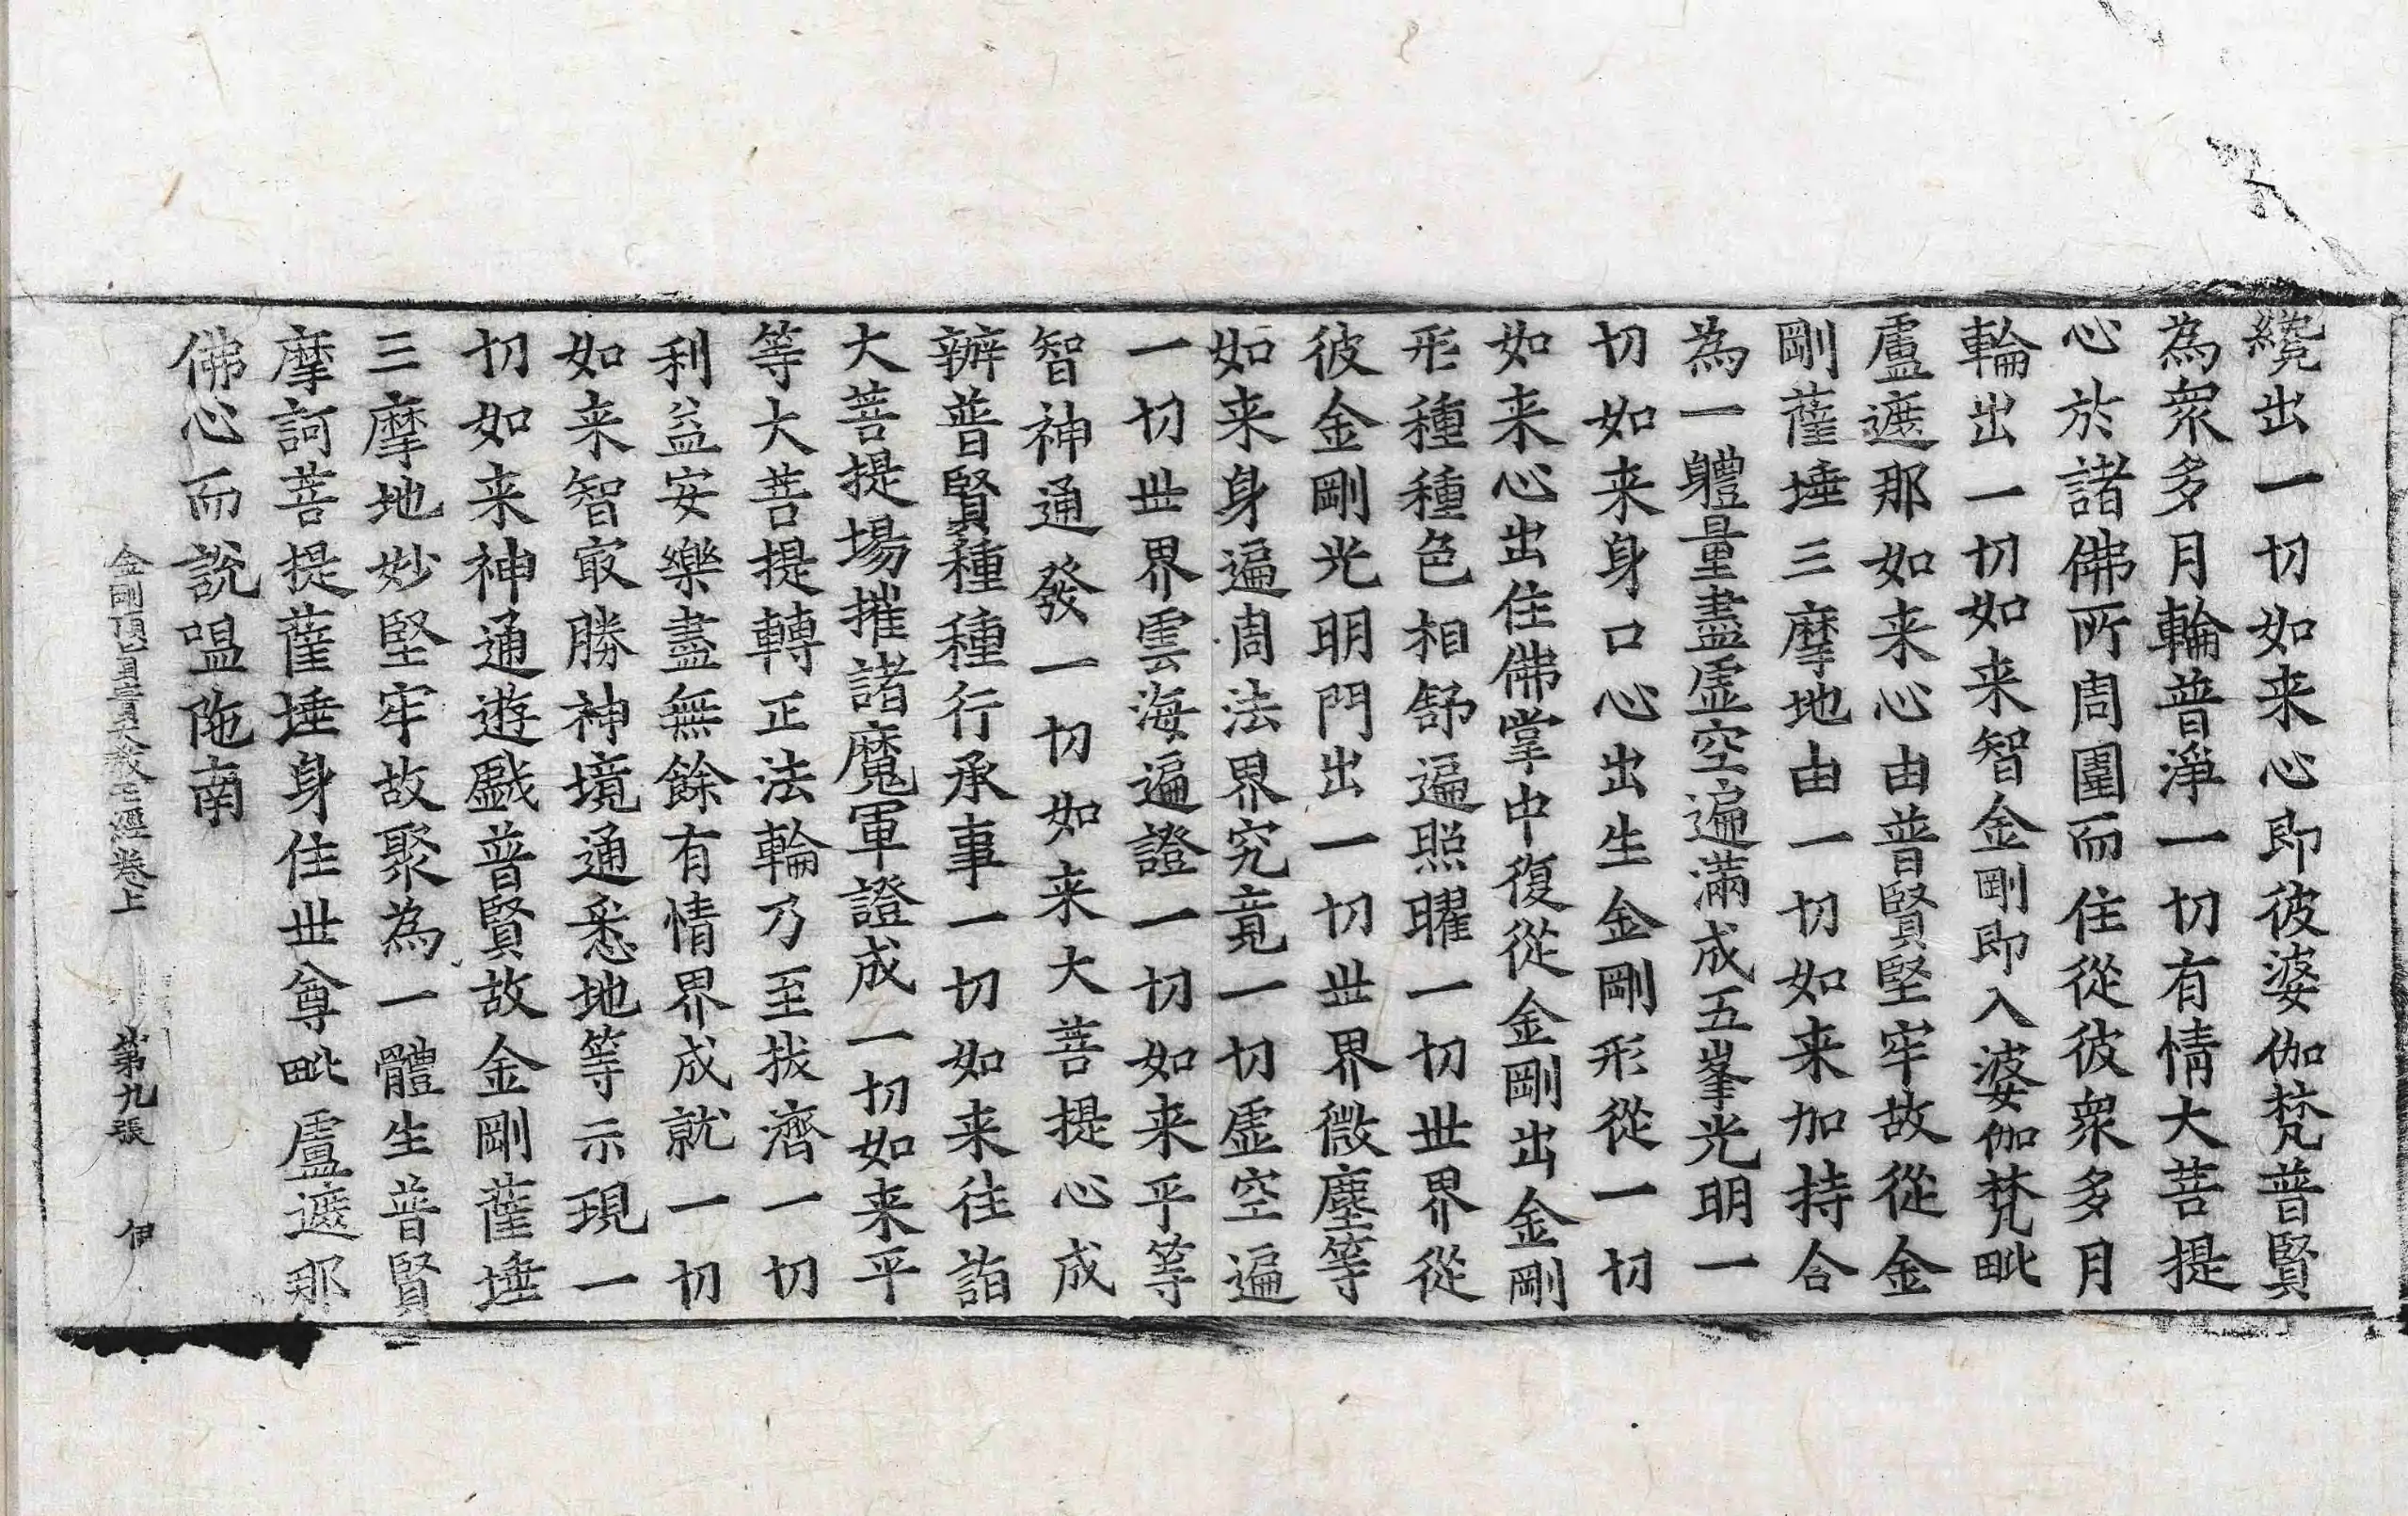 纔出一切如来心即彼婆伽梵普賢
為衆多月輪普淨一切有情大菩提
心於諸佛所周圍而住從彼衆多月
輪出一切如来智金剛即入婆伽梵毗
盧遮那如来心由普賢堅牢故從金
剛薩埵三摩地由一切如来加持合
為一軆量盡虛空遍滿成五峯光明一
切如来身口心出生金剛形從一切
如来心出住佛掌中復從金剛出金剛
形種種色相舒遍照曜一切世界從
彼金剛光明門出一切世界微塵等
如来身遍周法界究竟一切虛空遍
一切世界雲海遍證一切如来平等
智神通發一切如来大菩提心成
辦普賢種種行承事一切如来往詣
大菩提場摧諸魔軍證成一切如来平
等大菩提轉正法輪乃至拔濟一切
利益安樂盡無餘有情界成就一切
如来智㝡勝神境通悉地等示現一
切如来神通遊戲普賢故金剛薩埵
三摩地妙堅牢故聚為一體生普賢
摩訶菩提薩埵身住世尊毗盧遮那
佛心而說嗢陁南
金剛頂 大教王經卷上 第九張 伊